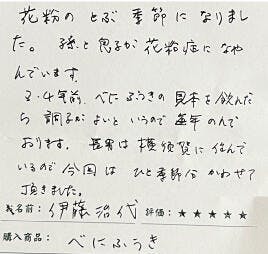 花粉のとぶ季節になりまし
た。孫と息子が花粉症になや
んでいます。
3・4年前、べにふうきの見本を飲んだ
ら調子がよいというので毎年のんで
おります。長男は横須賀に住んで
いるので今回はひと季節分かわせて
頂きました。
お名前：伊藤治代 評価：★★★★★
購入商品：べにふうき